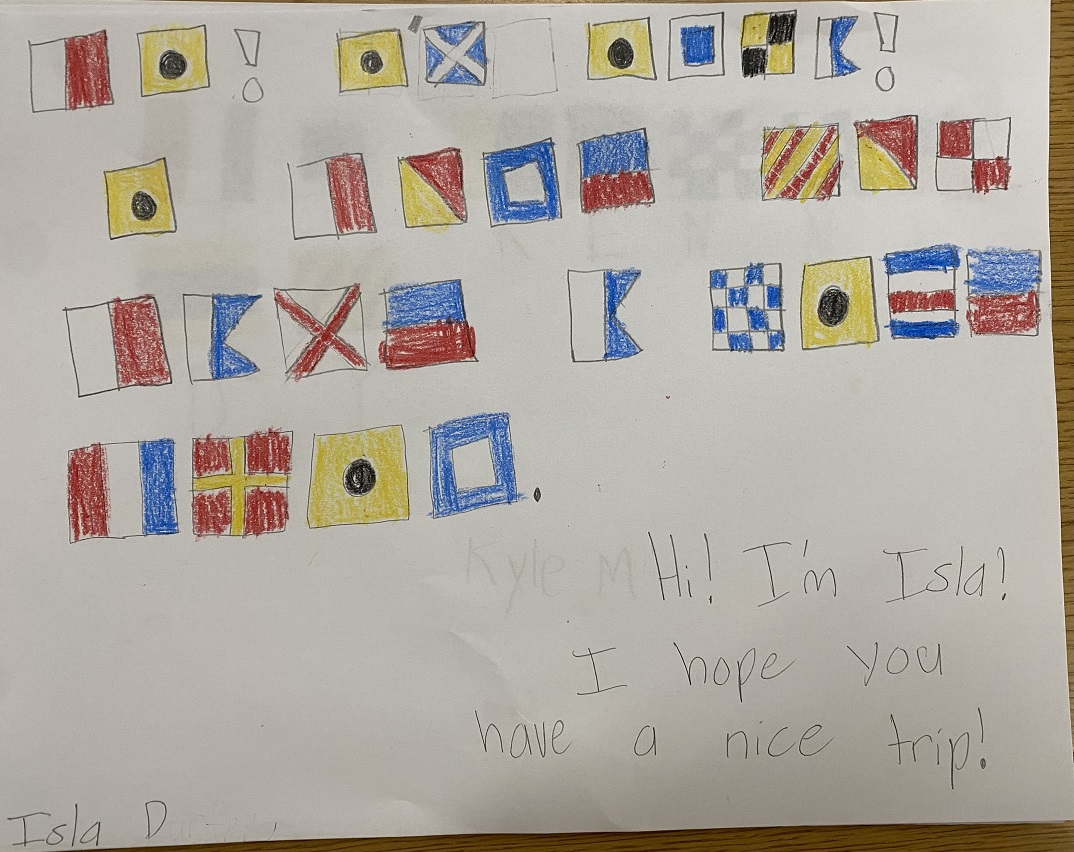 Hi! I'm Isla!
I hope you
have a nice trip!
Isla D